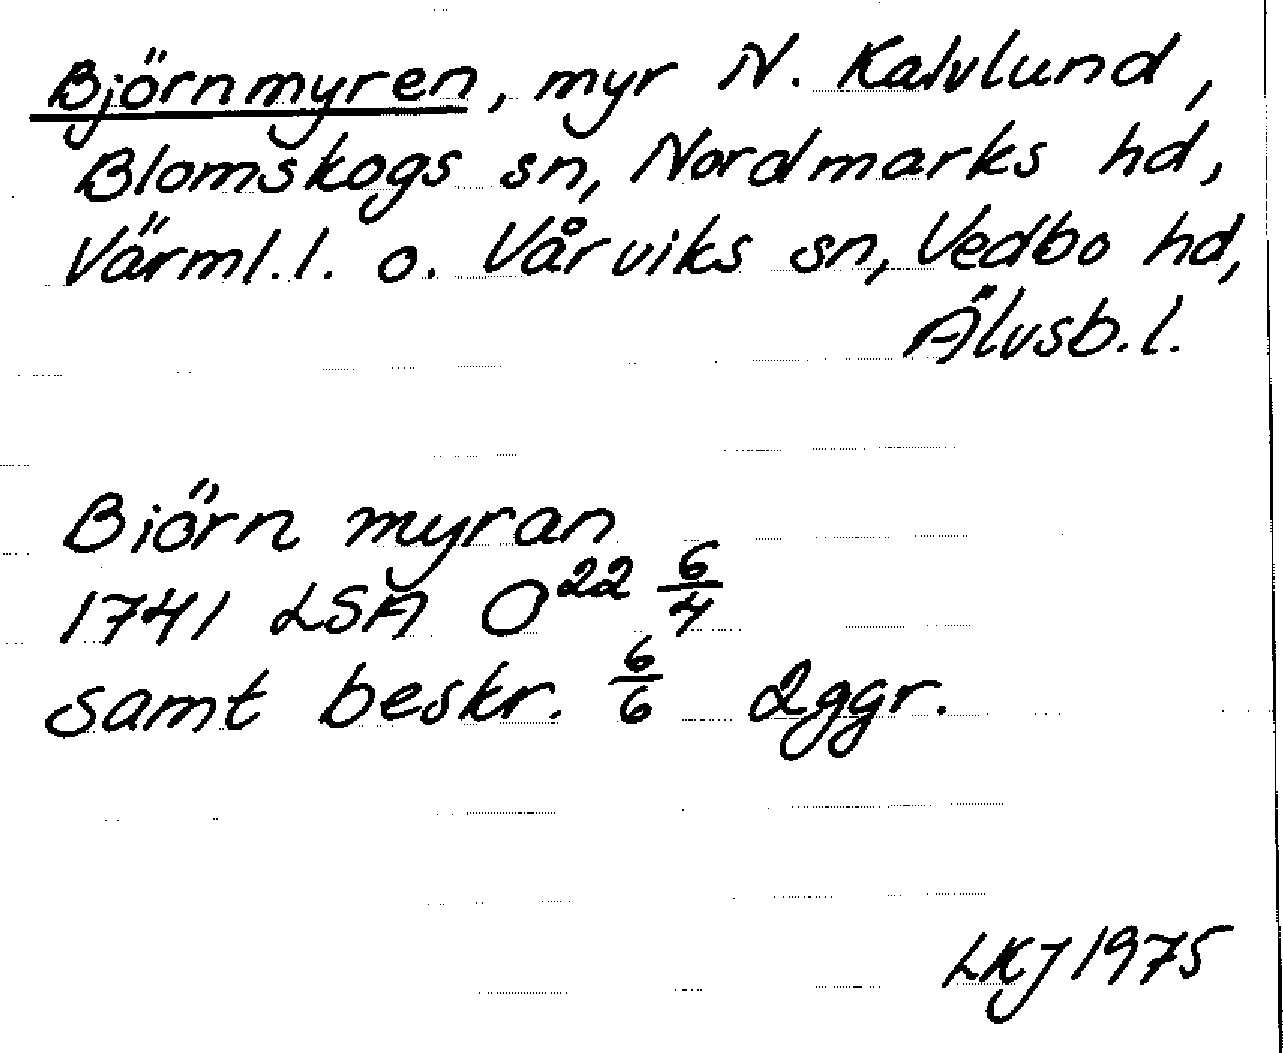 Björnmyren, myr N. Kalvlund,
Blomskogs sn, Nordmarks hd,
Värml.l. o. Vårviks sn, Vedbo hd,
Älvsb.l.
Biörn myran
1741 LSA O²² 6/4
samt beskr. 6/6 2ggr.
LKJ 1975